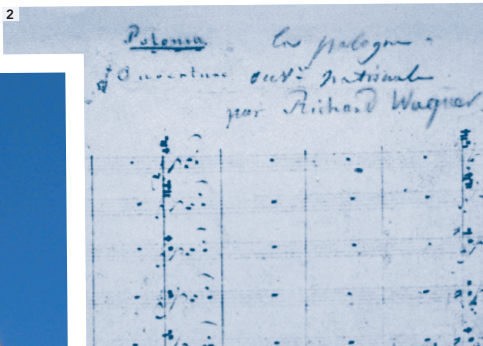 2
Polonia La pologne.
Ouverture nationale
par Richard Wagner.